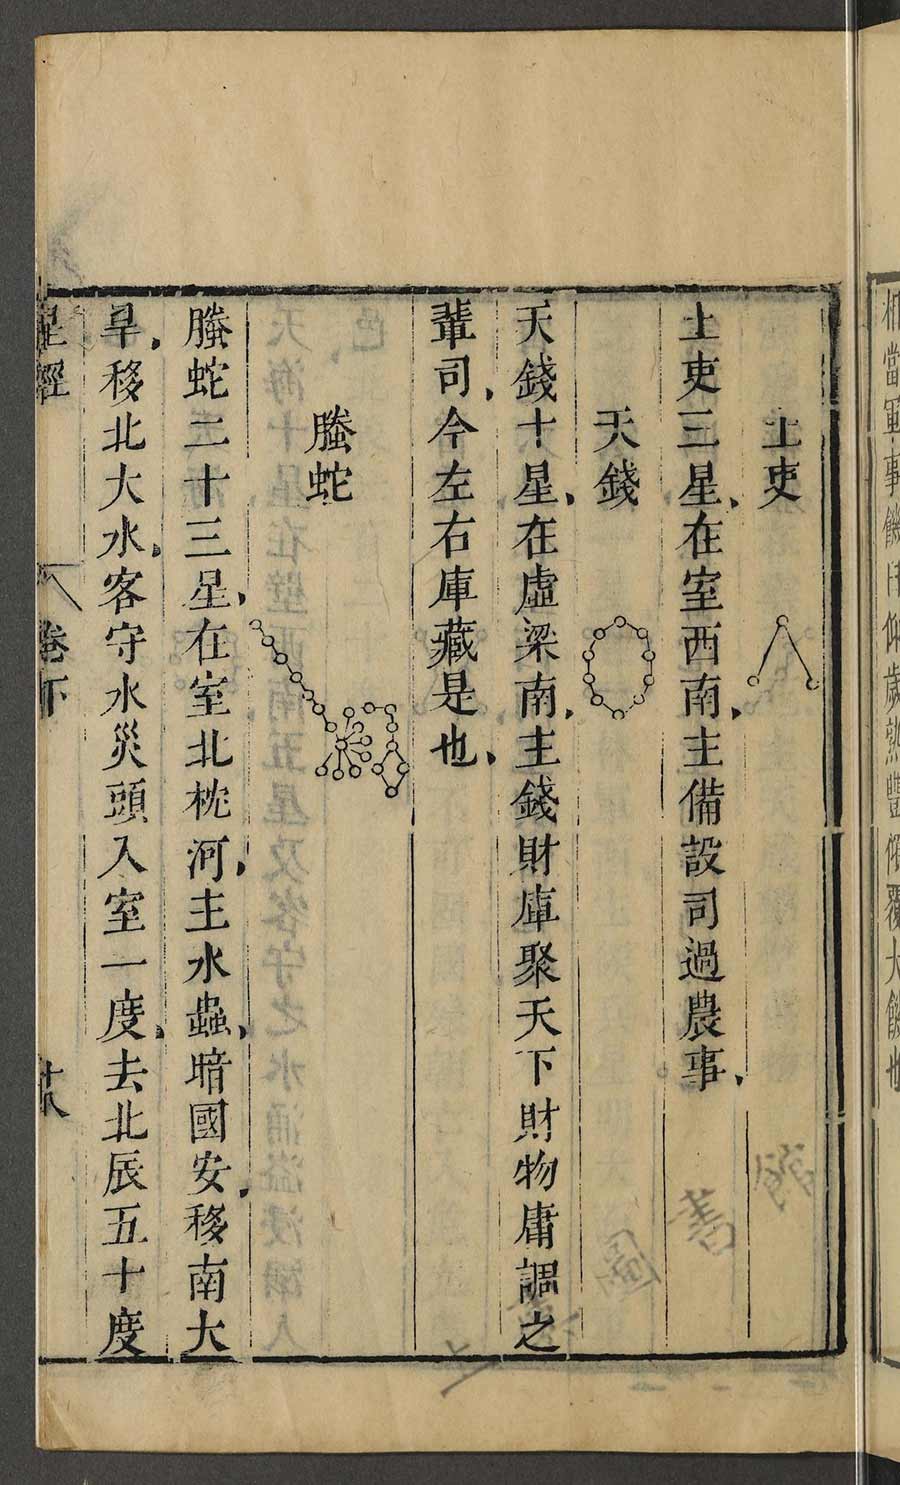 相當軍事饑
仰歲熟豐
覆大饑也
土吏
土吏三星在室西南主備設司過農事
天錢
天錢十星在虛梁南主錢財庫聚天下財物庸調之
輩司今左右庫藏是也
螣蛇
螣蛇二十三星在室北枕河主水蟲暗國安移南大
旱移北大水客守水災頭入室一度去北辰五十度
星經
卷下
十八